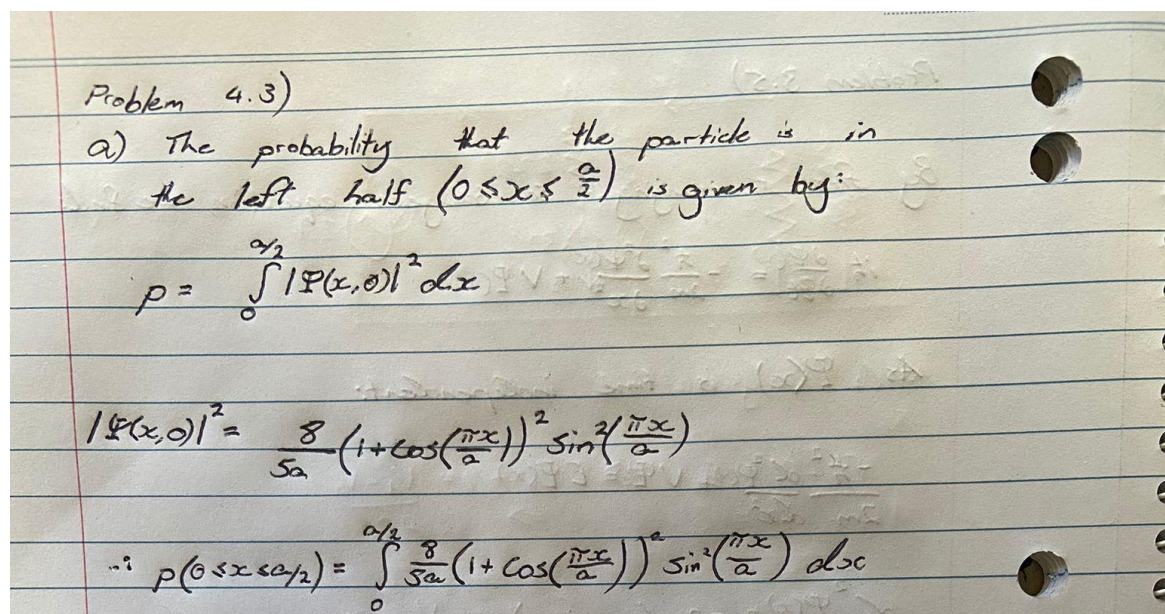 Problem 4.3)
a) The probability that the particle is in
the left half (0 ≤ x ≤ a/2) is given by:
p = ∫₀^(a/2) |Ψ(x,0)|² dx
|Ψ(x,0)|² = 8/5a (1+cos(πx/a))² sin²(πx/a)
∴ p(0≤x≤a/2) = ∫₀^(a/2) 8/5a (1+cos(πx/a))² sin²(πx/a) dx